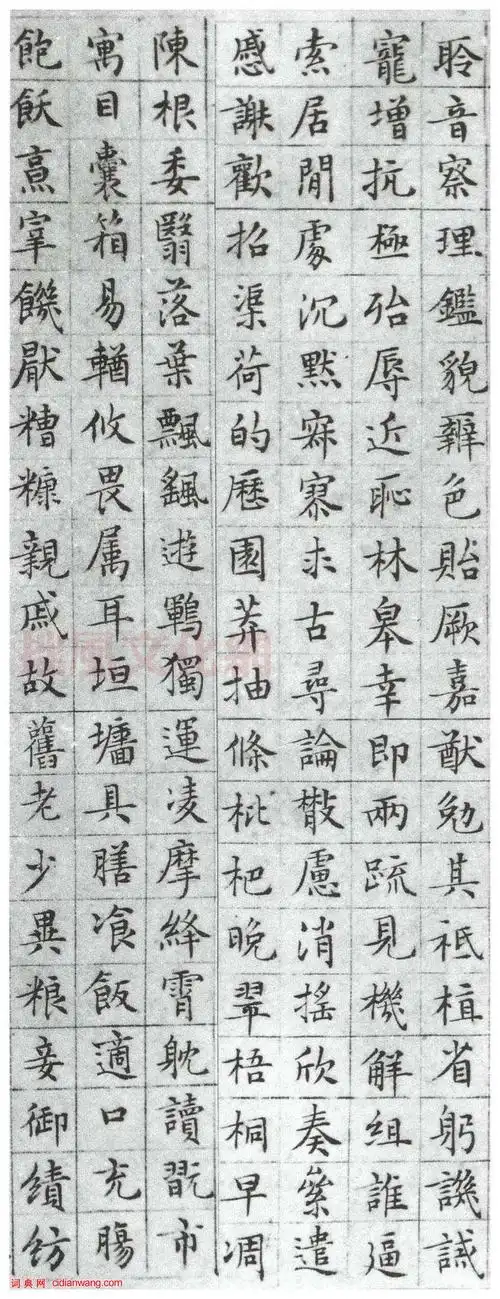 聆音察理鑑貌辨色貽厥嘉猷勉其祗植省躬譏誡
寵增抗極殆辱近恥林皋幸即兩疏見機解組誰逼
索居閒處沉默寂寥求古尋論散慮消搖欣奏累遣
慼謝歡招渠荷的歷園莽抽條枇杷晚翠梧桐早凋
陳根委翳落葉飄颻遊鵾獨運凌摩絳霄耽讀翫市
寓目囊箱易輶攸畏属耳垣墻具膳飡飯適口充腸
飽飫烹宰饑厭糟糠親戚故舊老少異粮妾御績紡
词典网 cidianwang.com